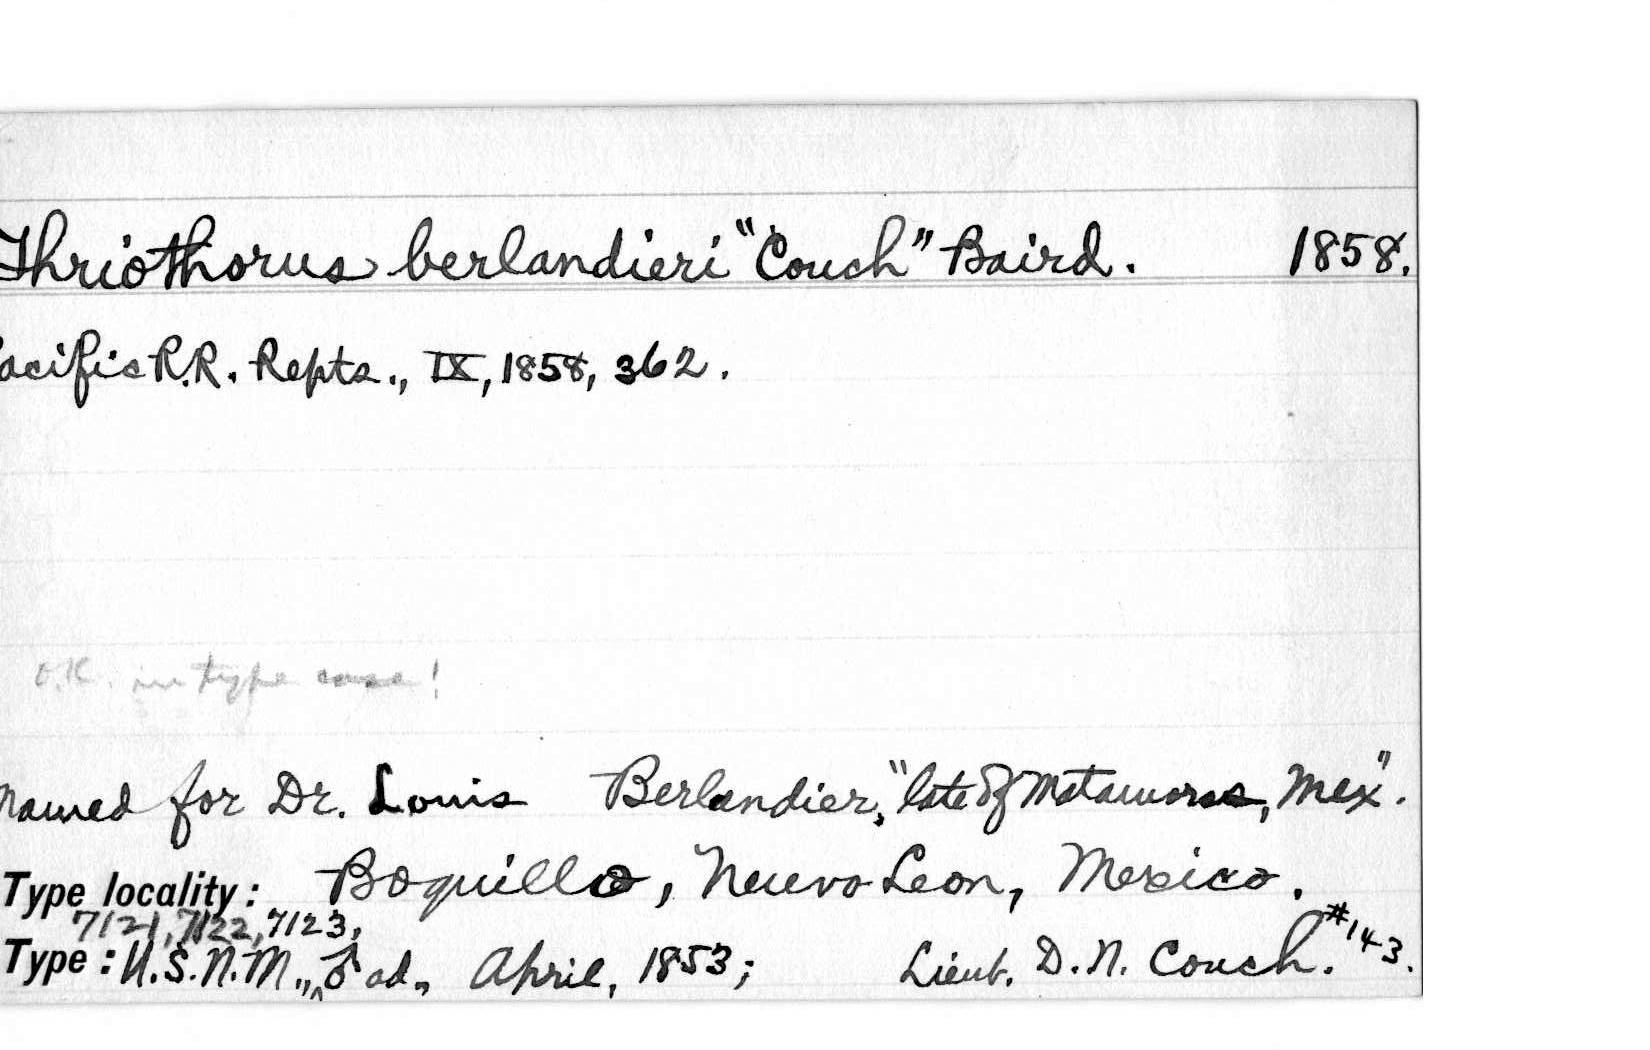 Thriothorus berlandieri "Couch" Baird. 1858.
acific R.R. Repts., IX, 1858, 362.
O.K. in type case!
Named for Dr. Louis Berlandier, "late of Matamoras, Mex".
Type locality: Boquillo, Nuevo Leon, Mexico.
7121, 7122, 7123,
Type: U.S.N.M., ♂ ad., April, 1853; Lieut. D. N. Couch. #143.